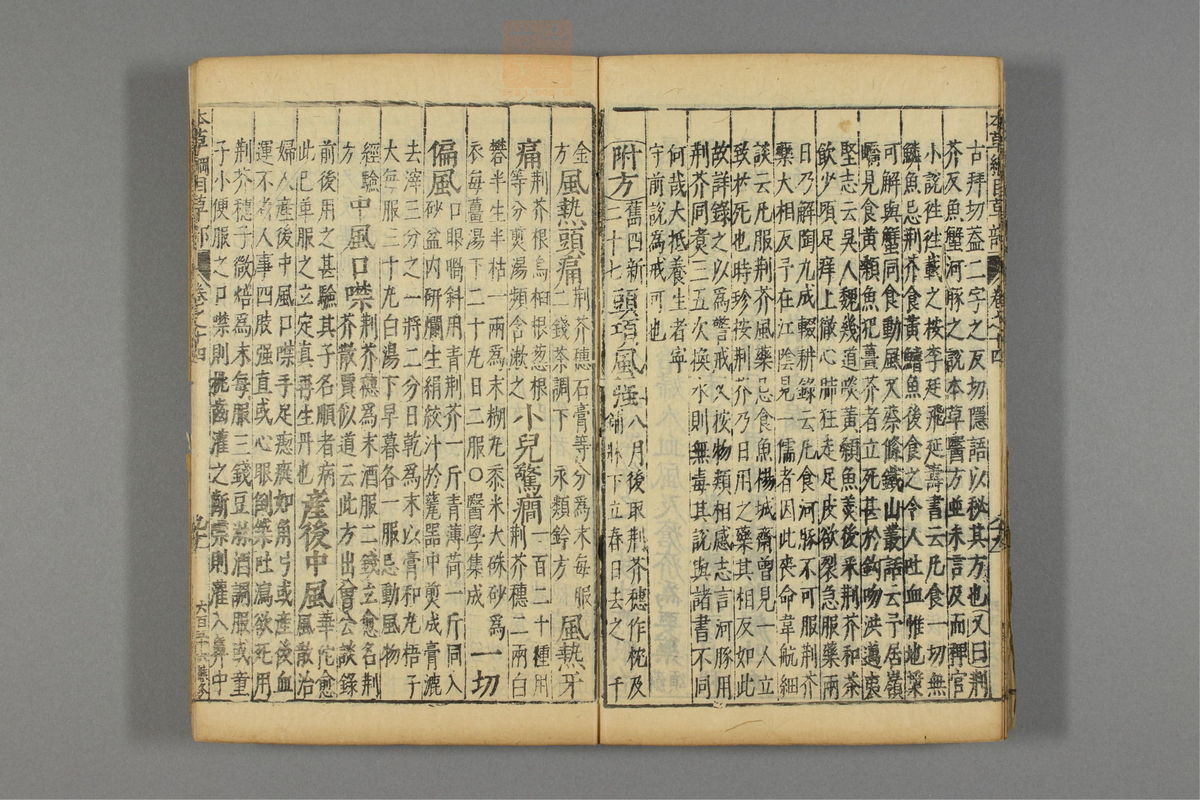 本草綱目草部 卷之十四
古拜切蓋二字之反切隱語以秘其方也又曰荆
芥反魚蟹河豚之說本草醫方並未言及而稗官
小說往往載之按李廷飛延壽書云凡食一切無
鱗魚忌荆芥食黃鱨魚後食之令人吐血惟地漿
可解與蟹同食動風又蔡絛鐵山叢話云予居嶺
嶠見食黃顙魚犯薑芥者立死甚於鈎吻洪邁夷
堅志云吳人魏幾道啖黃顙魚羹後采荆芥和茶
飲少頃足痒上徹心肺狂走足皮欲裂急服藥兩
日乃解陶九成輟耕錄云凡食河豚不可服荆芥
藥大相反予在江陰見一儒者因此喪命韋航細
談云凡服荆芥風藥忌食魚楊誠齋曾見一人立
致於死也時珍按荆芥乃日用之藥其相反如此
故詳錄之以爲警戒又按物類相感志言河豚用
荆芥同煮三五次換水則無毒其說與諸書不同
何哉大抵養生者寧
守前說爲戒可也
附方 舊四新二十七 頭項風强 八月後取荆芥穗作枕及鋪牀下立春日去之 千
金方 風熱頭痛 荆芥穗石膏等分爲末每服二錢茶調下 永類鈐方 風熱牙
痛 荆芥根烏桕根葱根等分煎湯頻含漱之 小兒驚癇 一百二十種用荆芥穗二兩白
礬半生半枯一兩爲末糊丸黍米大硃砂爲衣每薑湯下二十丸日二服○醫學集成 一切
偏風 口眼喎斜用青荆芥一斤青薄荷一斤同入砂盆内研爛生絹絞汁於甆器中煎成膏漉
去滓三分之一將二分日乾爲末以膏和丸梧子大每服三十丸白湯下早暮各一服忌動風物
經驗方 中風口噤 荆芥穗爲末酒服二錢立愈名荆芥散賈似道云此方出曾公談錄
前後用之甚驗其子名順者病此已單服之立定真再生丹也 產後中風 華佗愈風散治
婦人產後中風口噤手足瘛瘲如角弓或產後血運不省人事四肢强直或心眼倒築吐瀉欲死用
荆芥穗子微焙爲末每服三錢豆淋酒調服或童子小便服之口噤則挑齒灌之齗噤則灌入鼻中
本草綱目草部 卷之十四